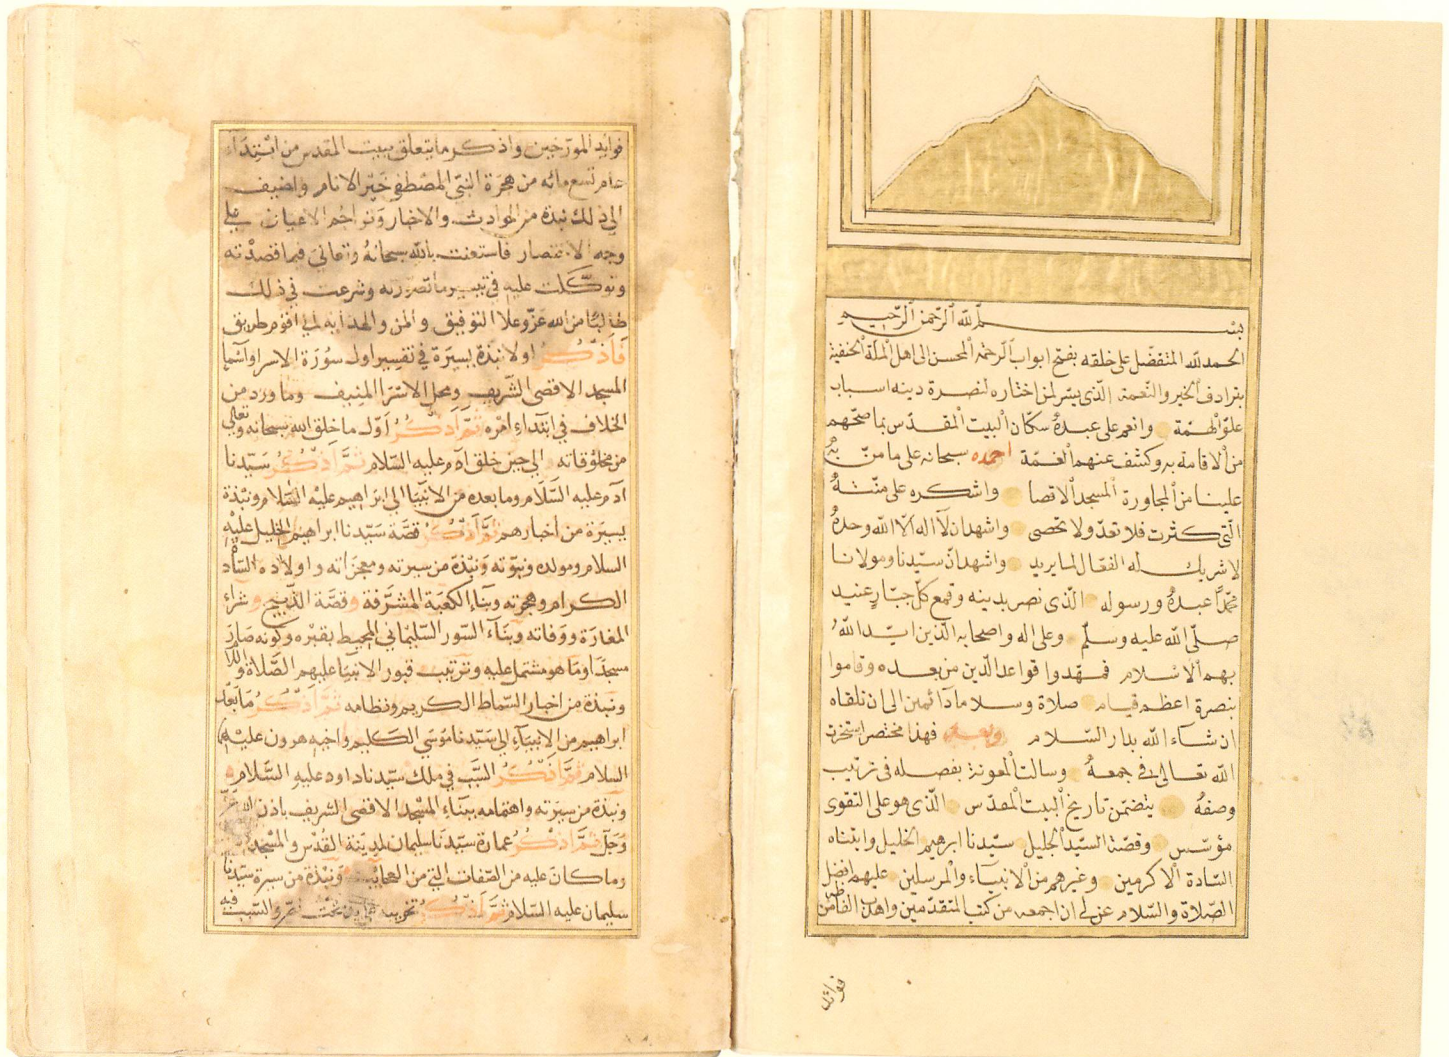 بسم الله الرحمن الرحيم
الحمد لله المتفضل على خلقه بفتح ابواب الرحمة المحسن الى اهل الملة الحنفية
بترادف الخير والنعمة الذى يسر لمن اختاره لنصرة دينه اسباب
علو الهمة وانعم على عبده سكان البيت المقدس بما صحهم
من الاقامة به وكشف عنهم الغمة احمده سبحانه على ما من به
علينا من المجاورة المسجد الاقصا واشكره على منته
التى كثرت فلا تعد ولا تحصى واشهد ان لا اله الا الله وحده
لا شريك له الفعال لما يريد واشهد ان سيدنا ومولانا
محمدا عبده ورسوله الذى نصر بدينه وقمع كل جبار عنيد
صلى الله عليه وسلم وعلى اله واصحابه الذين ايد الله
بهم الاسلام فمهدوا قواعد الدين من بعده وقاموا
بنصرة اعظم قيام صلاة وسلاما دائمين الى ان نلقاه
ان شاء الله بدار السلام وبعد فهذا مختصر استخرت
الله تعالى فى جمعه وسالت المعونة بفصله فى ترتيب
وصفه يتضمن تاريخ البيت المقدس الذى هو على التقوى
مؤسس وقصة السيد الجليل سيدنا ابرهيم الخليل وابنائه
السادة الاكرمين وغيرهم من الانبياء والمرسلين عليهم افضل
الصلاة والسلام عن لى ان اجمعه من كتب المتقدمين واهذب الفاظه من
فوائد
فوائد المورخين واذكر ما يتعلق ببيت المقدس من ابتداء
عام تسع مائه من هجرة النبى المصطفى خير الانام واضيف
الى ذلك نبذة من الحوادث والاخبار وتراجم الاعيان على
وجه الاختصار فاستعنت بالله سبحانه وتعالى فيما قصدته
وتوكلت عليه فى تيسير ما تصورته وشرعت فى ذلك
طالبا من الله عز وعلا التوفيق والمن والهدايه الى اقوم طريق
فاذكر اولا نبذة يسيرة فى تفسير اول سورة الاسرا واسما
المسجد الاقصى الشريف ومحل الاسرا المنيف وما ورد من
الخلاف فى ابتداء امره ثم اذكر اول ما خلق الله سبحانه وتعالى
من مخلوقاته الى حين خلق ادم عليه السلام ثم اذكر سيدنا
ادم عليه السلام وما بعده من الانبيا الى ابراهيم عليه السلام ونبذة
يسيرة من اخبارهم ثم اذكر قصة سيدنا ابراهيم الخليل عليه
السلام ومولده ونبوته ونبذة من سيرته ومعجزاته واولاده السادة
الكرام وهجرته وبناء الكعبة المشرفة وقصة الذبيح وشراء
المغارة ووفاته وبناء السور السليمانى المحيط بقبره وكونه صار
مسجدا وما هو مشتمل عليه وترتيب قبور الانبيا عليهم الصلاة والسلام
ونبذة من اخبار السماط الكريم ونظامه ثم اذكر ما بعد
ابراهيم من الانبياء الى سيدنا موسى الكليم واخيه هرون عليهم
السلام ثم اذكر السبب فى ملك سيدنا داود عليه السلام
ونبذة من سيرته واهتمامه ببناء المسجد الاقصى الشريف باذن الله عز
وجل ثم اذكر عمارة سيدنا سليمان لمدينة القدس والمسجد
وما كان عليه من الصفات التى من العجايب ونبذة من سيرة سيدنا
سليمان عليه السلام ثم اذكر تخريبه على يد بخت نصر والسبب فيه